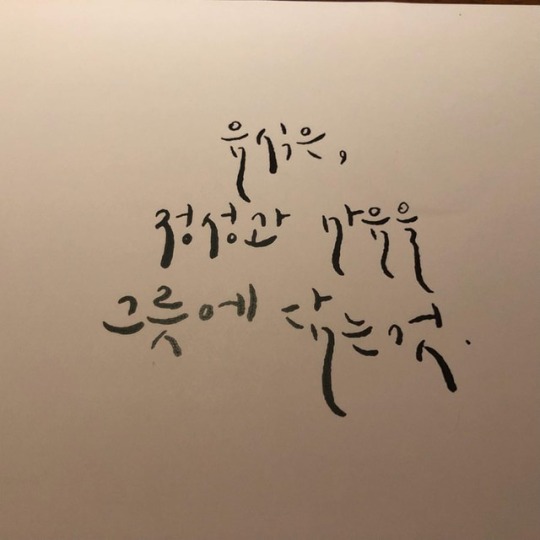 음식은,
정성과 마음을
그릇에 담는것.